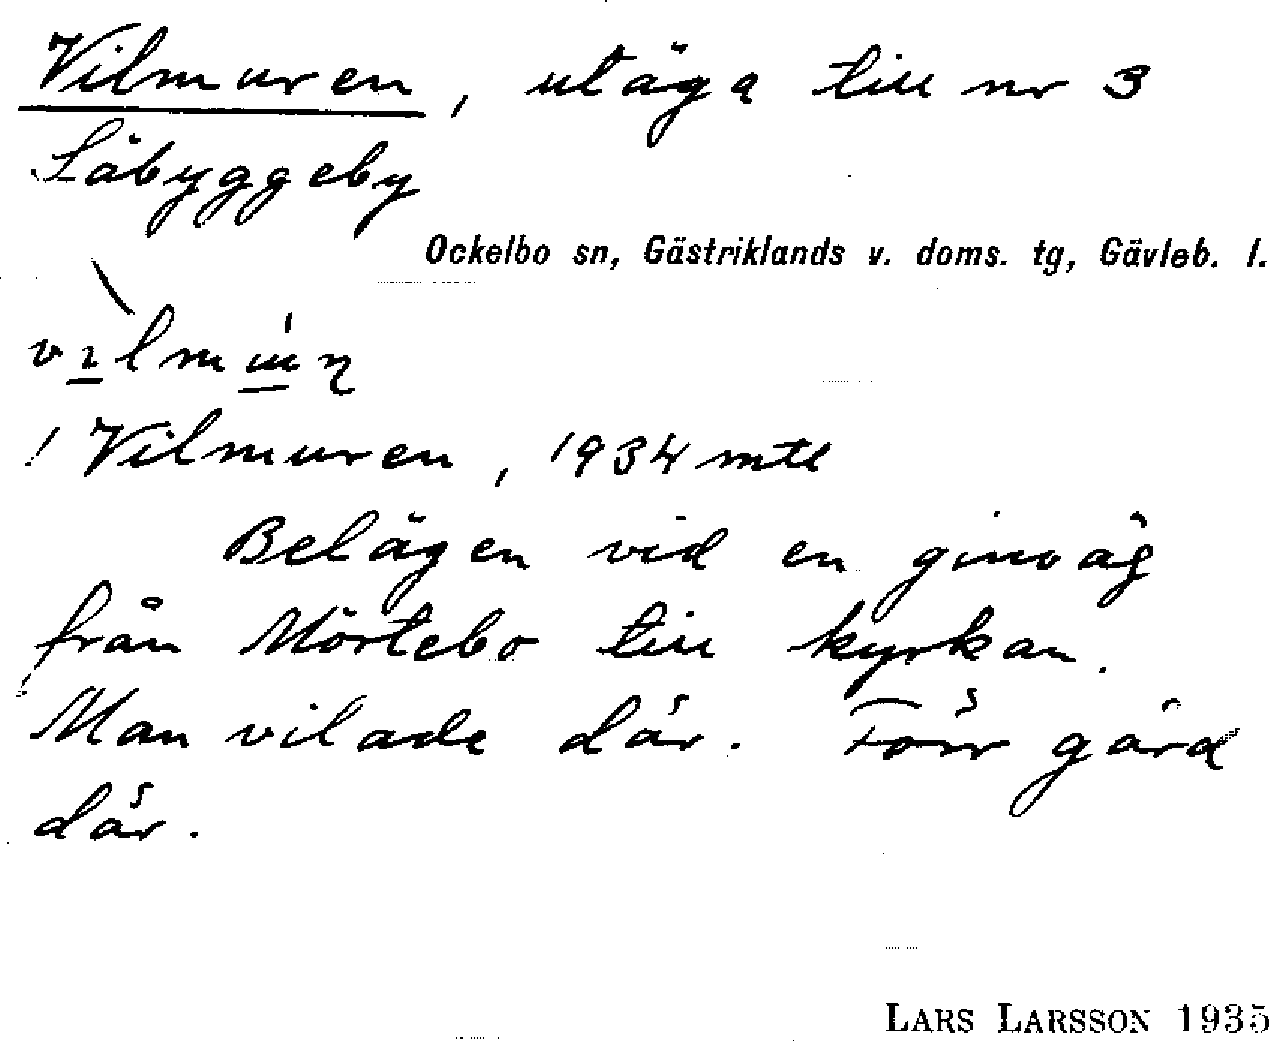 Vilmuren, utäga till nr 3
Säbyggeby
Ockelbo sn, Gästriklands v. doms. tg, Gävleb. l.
! Vilmuren, 1934 mtl
Belägen vid en ginväg
från Mörtebo till kyrkan.
Man vilade där. Förr gård
där.
LARS LARSSON 1935